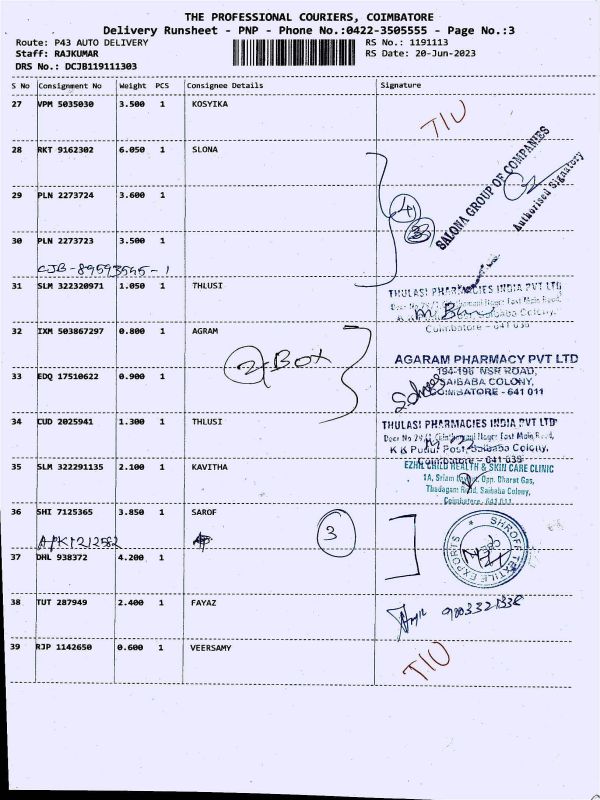 THE PROFESSIONAL COURIERS, COIMBATORE
Delivery Runsheet - PNP - Phone No.:0422-3505555 - Page No.:3
Route: P43 AUTO DELIVERY RS No.: 1191113
Staff: RAJKUMAR RS Date: 20-Jun-2023
DRS No.: DCJB119111303
S No Consignment No Weight PCS Consignee Details Signature
27 VPM 5035030 3.500 1 KOSYIKA
TIU
28 RKT 9162302 6.050 1 SLONA
SALONA GROUP OF COMPANIES
Authorised Signatory
29 PLN 2273724 3.600 1
4
30 PLN 2273723 3.500 1
CJB-89593545-1
31 SLM 322320971 1.050 1 THLUSI
THULASI PHARMACIES INDIA PVT LTD
Saibaba Colony,
Coimbatore - 641 038
32 IXM 503867297 0.800 1 AGRAM
2-Box
AGARAM PHARMACY PVT LTD
194-196 NSR ROAD,
SAIBABA COLONY,
COIMBATORE - 641 011
33 EDQ 17510622 0.900 1
34 CUD 2025941 1.300 1 THLUSI
THULASI PHARMACIES INDIA PVT LTD
K K Pudur Post, Saibaba Colony,
Coimbatore - 641 038
35 SLM 322291135 2.100 1 KAVITHA
EZHIL CHILD HEALTH & SKIN CARE CLINIC
Opp. Bharat Gas,
Thadagam Road, Saibaba Colony,
36 SHI 7125365 3.850 1 SAROF
3
SHROFF TEXTILE EXPORTS
37 DHL 938372 4.200 1
38 TUT 287949 2.400 1 FAYAZ
39 RJP 1142650 0.600 1 VEERSAMY
TIU